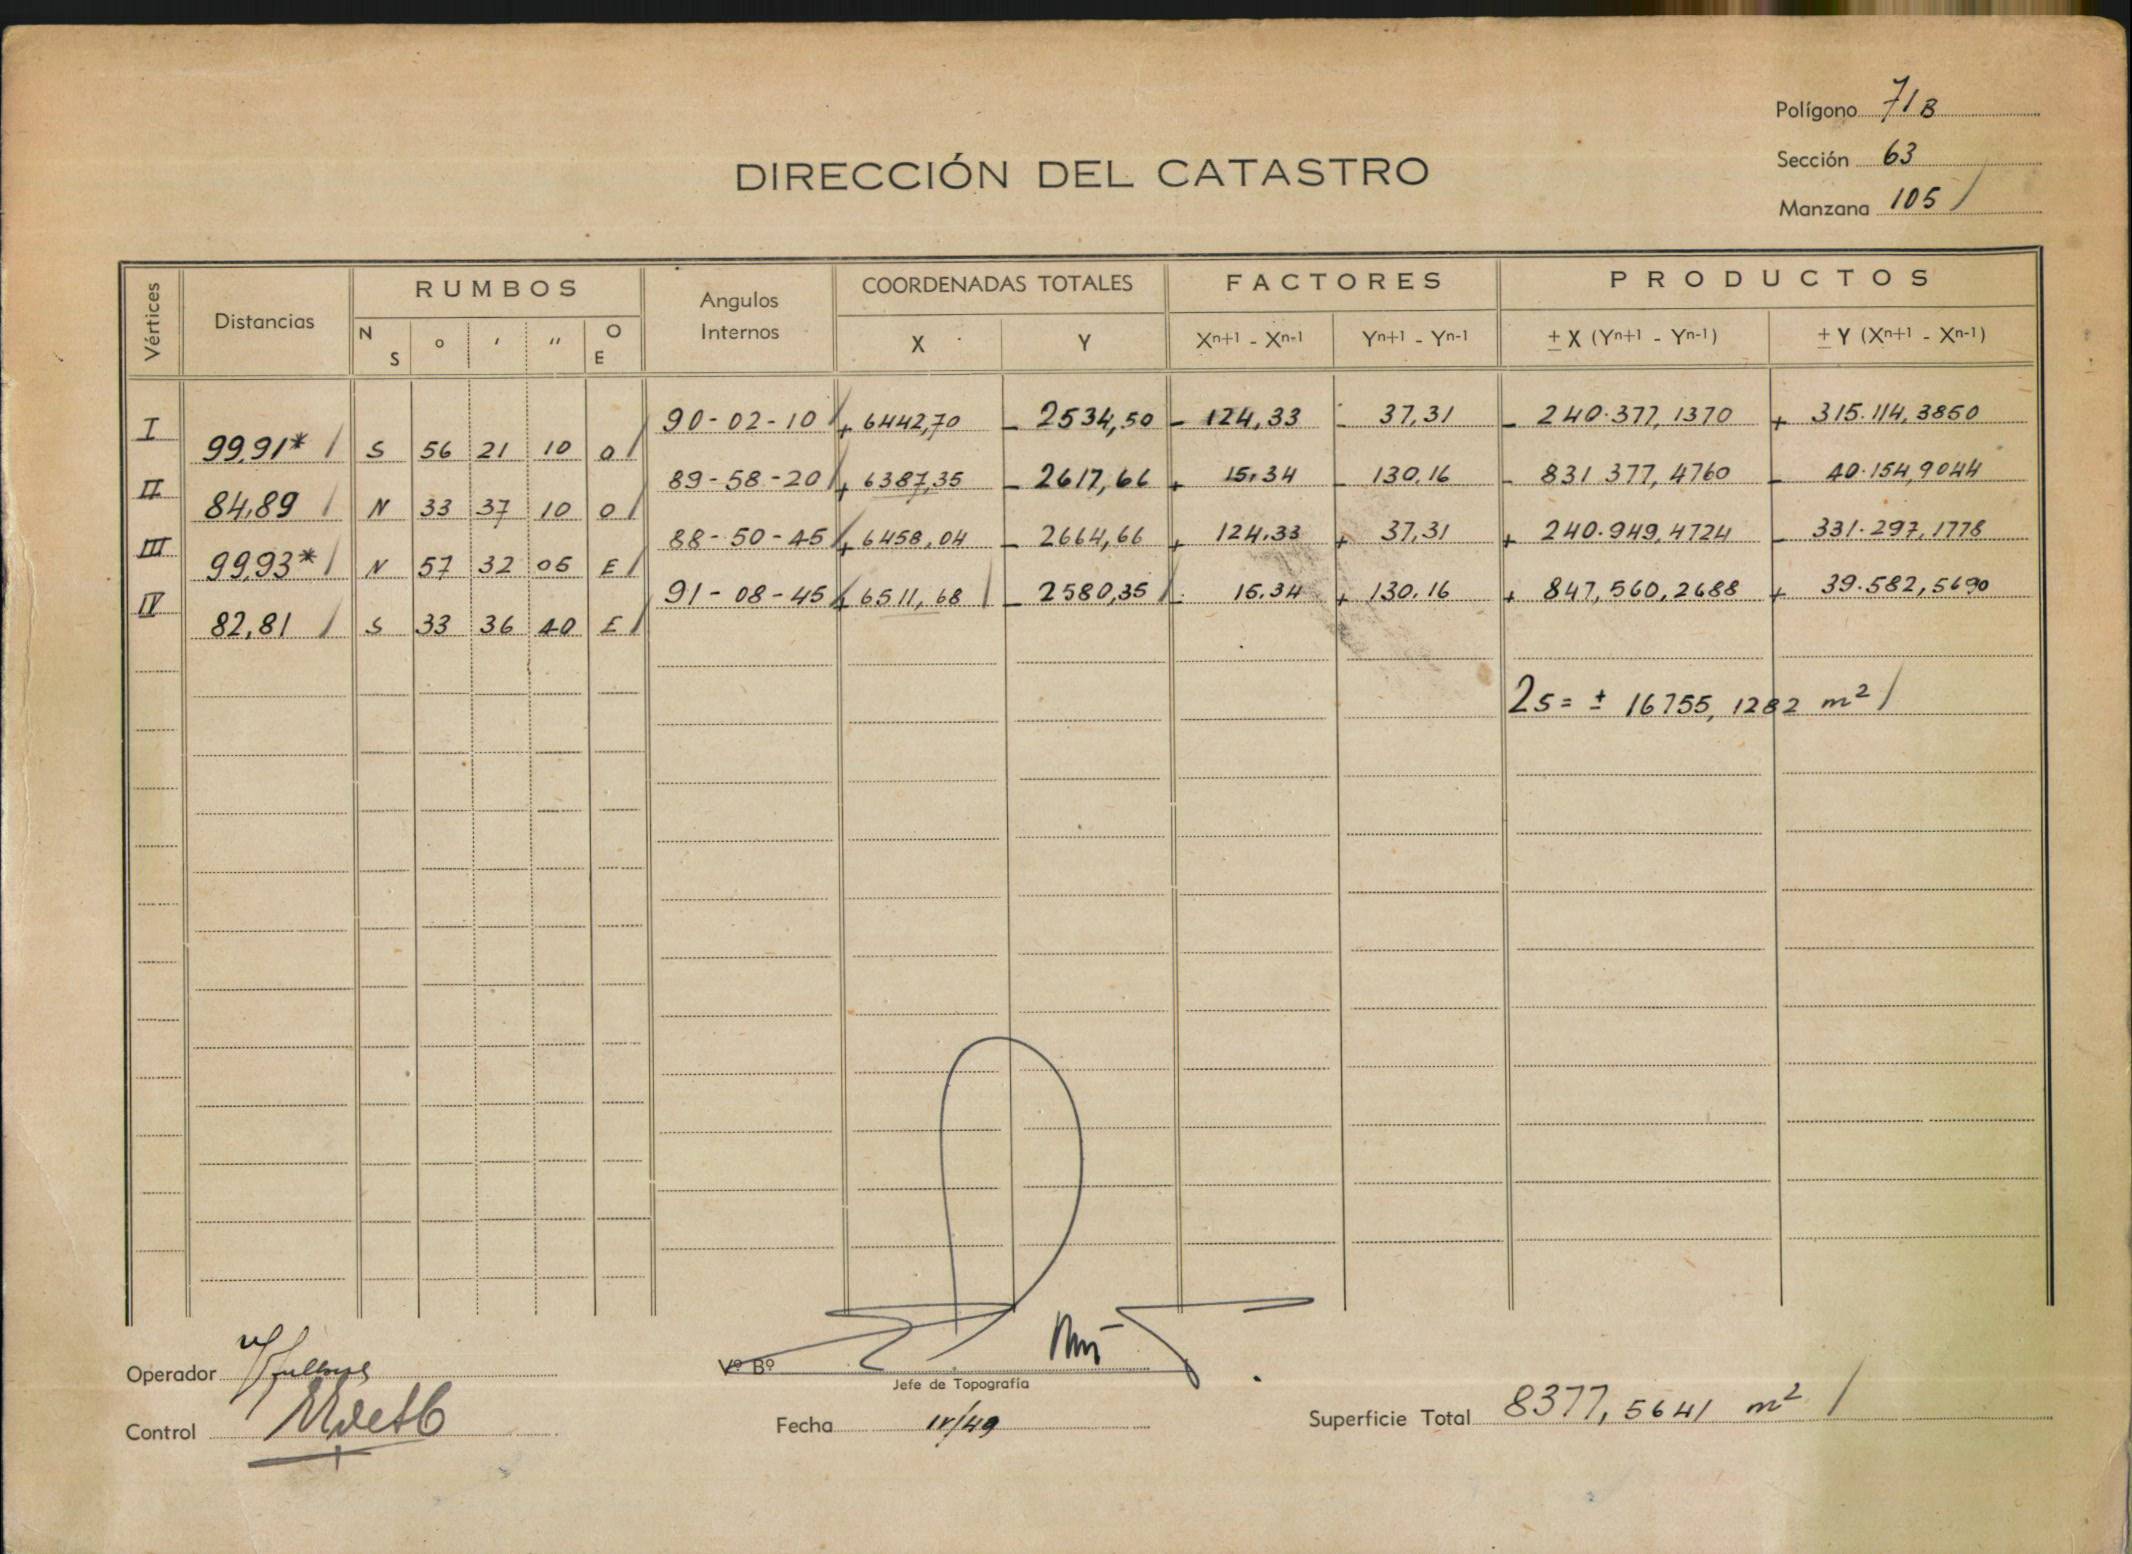 Polígono 71B
DIRECCIÓN DEL CATASTRO
Sección 63
Manzana 105 /
Vértices Distancias RUMBOS Angulos Internos COORDENADAS TOTALES FACTORES PRODUCTOS
N S ° ′ ″ O E X Y Xn+1 - Xn-1 Yn+1 - Yn-1 ± X (Yn+1 - Yn-1) ± Y (Xn+1 - Xn-1)
I 90-02-10 / + 6442,70 - 2534,50 - 124,33 - 37,31 - 240.377,1370 + 315.114,3850
99,91* / S 56 21 10 O /
II 89-58-20 / + 6387,35 - 2617,66 + 15,34 - 130,16 - 831 377,4760 - 40.154,9044
84,89 / N 33 37 10 O /
III 88-50-45 / + 6458,04 - 2664,66 + 124,33 + 37,31 + 240.949,4724 - 331.297,1778
99,93* / N 57 32 05 E /
IV 91-08-45 / + 6511,68 / - 2580,35 / - 15,34 + 130,16 + 847,560,2688 + 39.582,5690
82,81 / S 33 36 40 E /
2S = ± 16755,1282 m² /
Operador
Vº Bº
Jefe de Topografía
Control
Fecha IV/49
Superficie Total 8377,5641 m² /